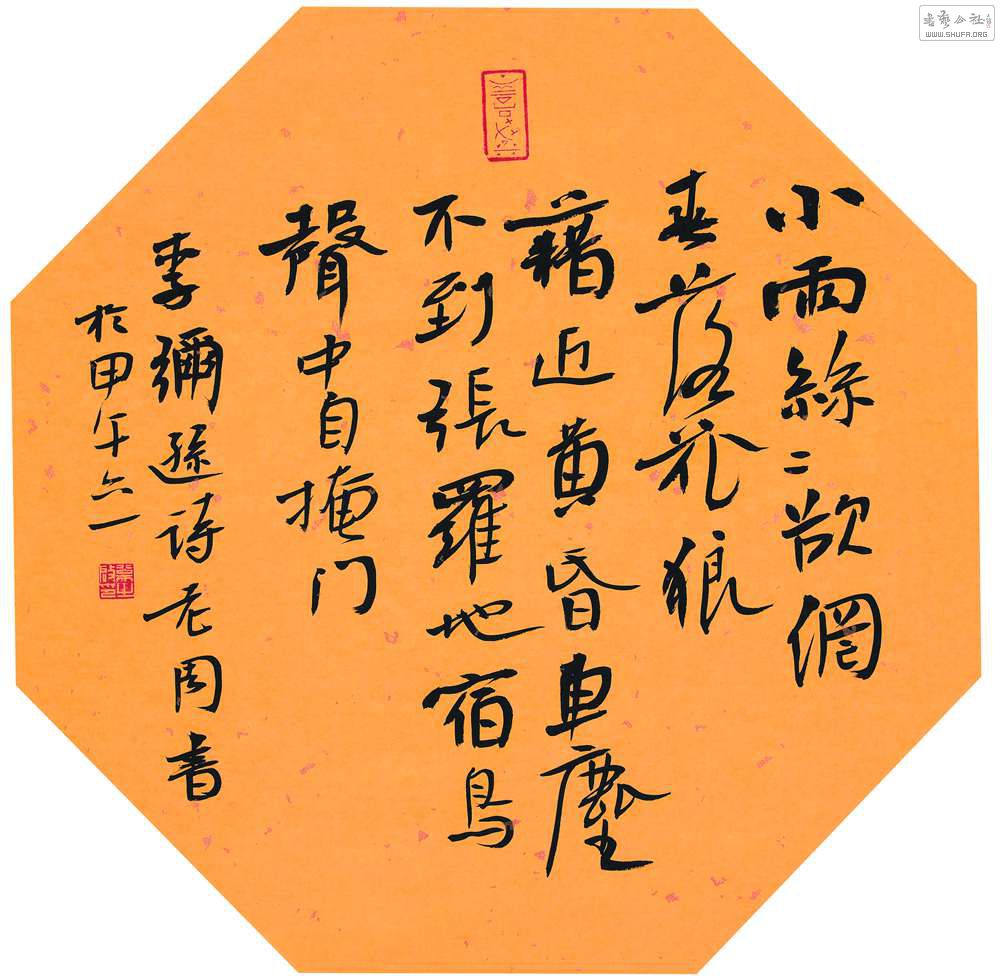 小雨絲〻欲網
春落花狼
藉近黄昏車塵
不到張羅地宿鳥
聲中自掩门
李彌遜詩老周書
於甲午六一
书艺公社
WWW.SHUFA.ORG